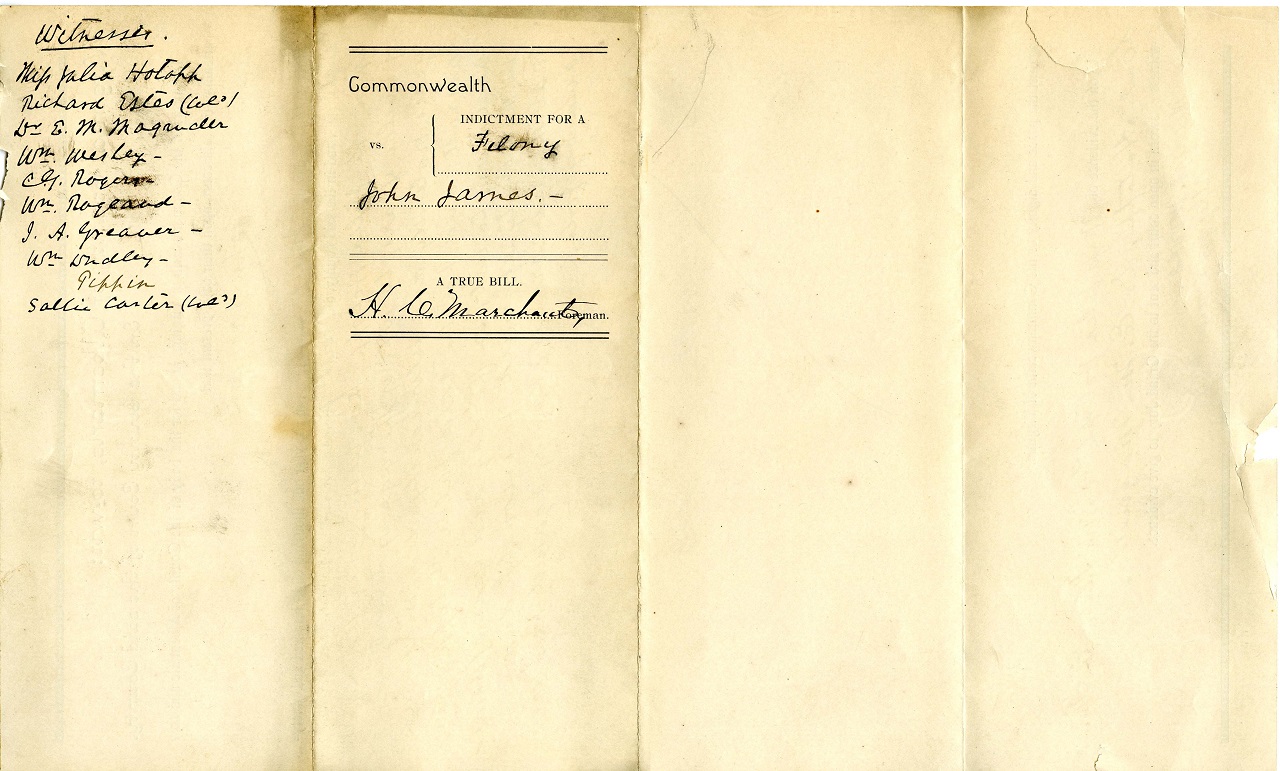 Witnesses.
Miss Julia Hotopp
Richard Estes (Cold)
Dr E. M. Magruder
Wm. Wesley -
C.G. Rogers
Wm. Rogeaud -
J. A. Greaver -
Wm Dudley -
Pippin
Sallie Carter (Cold)
Commonwealth
INDICTMENT FOR A
vs.
Felony
John James. -
A TRUE BILL.
H. C. Marchant, Foreman.